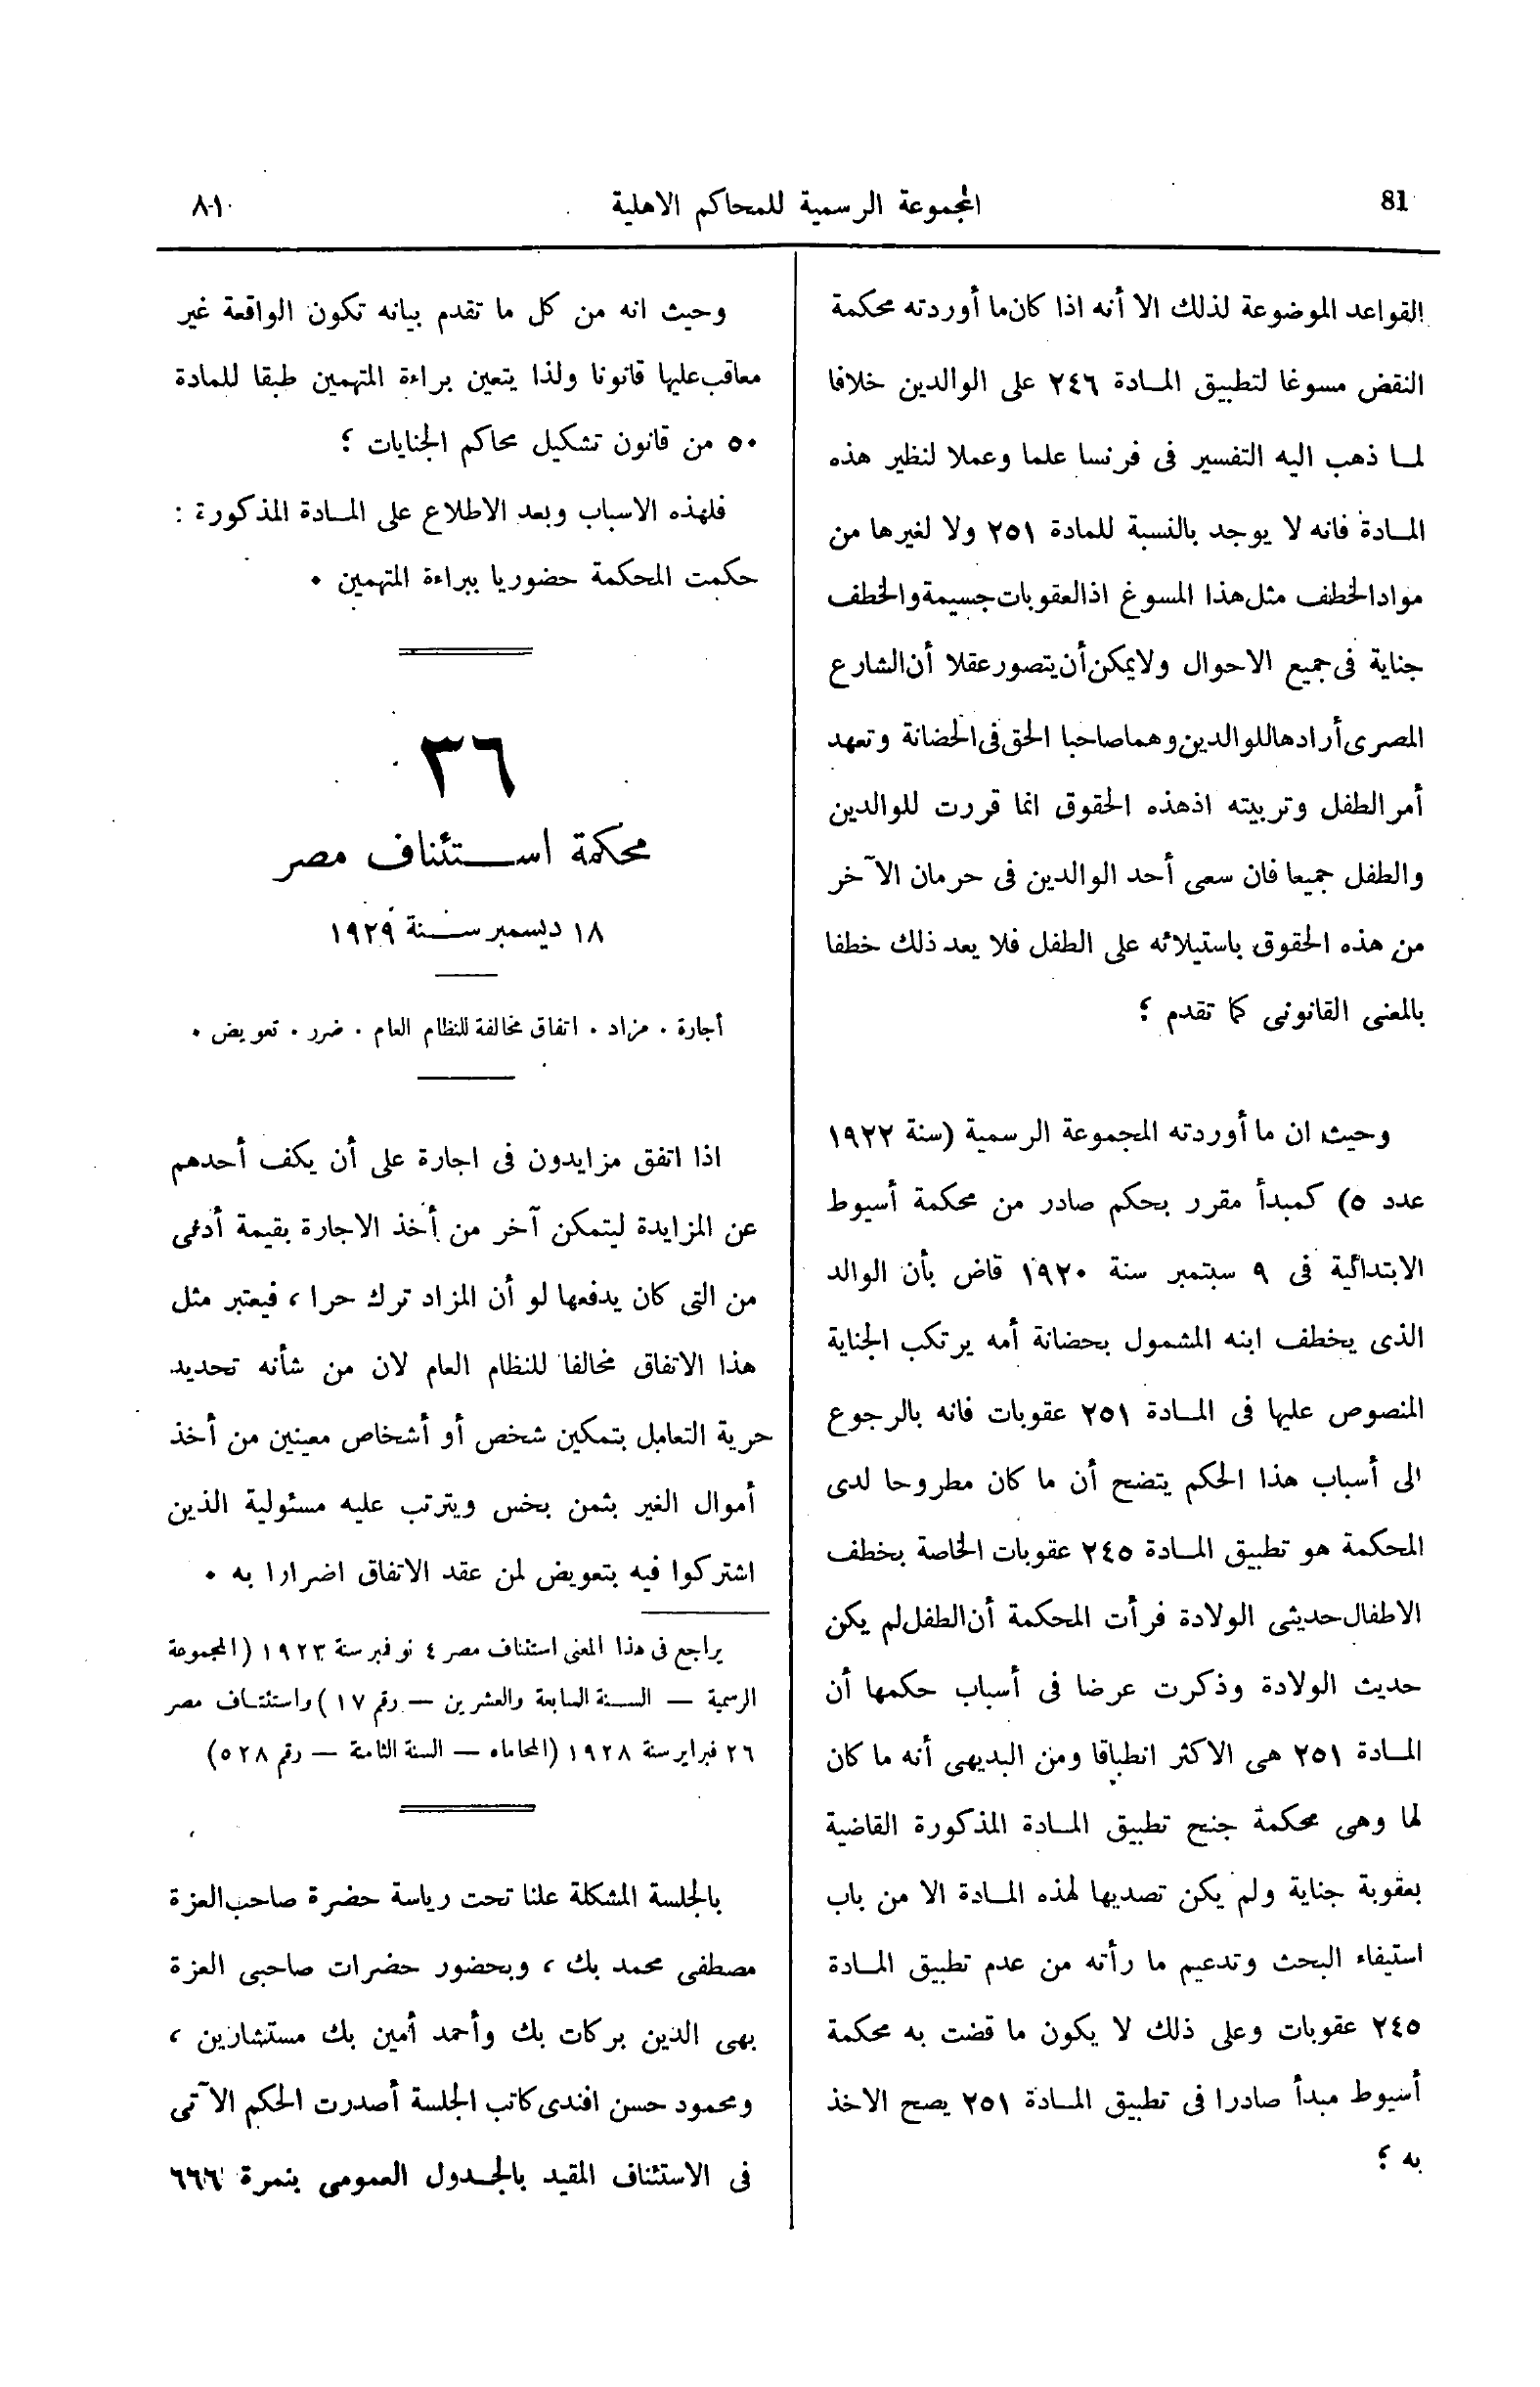 81
المجموعة الرسمية للمحاكم الاهلية
٨١
القواعد الموضوعة لذلك الا أنه اذا كان ما أوردته محكمة
النقض مسوغا لتطبيق المادة ٢٤٦ على الوالدين خلافا
لما ذهب اليه التفسير فى فرنسا علما وعملا لنظير هذه
المادة فانه لا يوجد بالنسبة للمادة ٢٥١ ولا لغيرها من
مواد الخطف مثل هذا المسوغ اذ العقوبات جسيمة والخطف
جناية فى جميع الاحوال ولا يمكن أن يتصور عقلا أن الشارع
المصرى أرادها للوالدين وهما صاحبا الحق فى الحضانة وتعهد
أمر الطفل وتربيته اذ هذه الحقوق انما قررت للوالدين
والطفل جميعا فان سعى أحد الوالدين فى حرمان الآخر
من هذه الحقوق باستيلائه على الطفل فلا يعد ذلك خطفا
بالمعنى القانونى كما تقدم ؛
وحيث ان ما أوردته المجموعة الرسمية (سنة ١٩٢٢
عدد ٥) كمبدأ مقرر بحكم صادر من محكمة أسيوط
الابتدائية فى ٩ سبتمبر سنة ١٩٢٠ قاض بأن الوالد
الذى يخطف ابنه المشمول بحضانة أمه يرتكب الجناية
المنصوص عليها فى المادة ٢٥١ عقوبات فانه بالرجوع
الى أسباب هذا الحكم يتضح أن ما كان مطروحا لدى
المحكمة هو تطبيق المادة ٢٤٥ عقوبات الخاصة بخطف
الاطفال حديثى الولادة فرأت المحكمة أن الطفل لم يكن
حديث الولادة وذكرت عرضا فى أسباب حكمها أن
المادة ٢٥١ هى الاكثر انطباقا ومن البديهى أنه ما كان
لها وهى محكمة جنح تطبيق المادة المذكورة القاضية
بعقوبة جناية ولم يكن تصديها لهذه المادة الا من باب
استيفاء البحث وتدعيم ما رأته من عدم تطبيق المادة
٢٤٥ عقوبات وعلى ذلك لا يكون ما قضت به محكمة
أسيوط مبدأ صادرا فى تطبيق المادة ٢٥١ يصح الاخذ
به ؛
وحيث انه من كل ما تقدم بيانه تكون الواقعة غير
معاقب عليها قانونا ولذا يتعين براءة المتهمين طبقا للمادة
٥٠ من قانون تشكيل محاكم الجنايات ؛
فلهذه الاسباب وبعد الاطلاع على المادة المذكورة :
حكمت المحكمة حضوريا ببراءة المتهمين .
٣٦
محكمة استئناف مصر
١٨ ديسمبر سنة ١٩٢٩
أجارة . مزاد . اتفاق مخالفة للنظام العام . ضرر . تعويض .
اذا اتفق مزايدون فى اجارة على أن يكف أحدهم
عن المزايدة ليتمكن آخر من أخذ الاجارة بقيمة أدنى
من التى كان يدفعها لو أن المزاد ترك حرا ، فيعتبر مثل
هذا الاتفاق مخالفا للنظام العام لان من شأنه تحديد
حرية التعامل بتمكين شخص أو أشخاص معينين من أخذ
أموال الغير بثمن بخس ويترتب عليه مسئولية الذين
اشتركوا فيه بتعويض لمن عقد الاتفاق اضرارا به .
يراجع فى هذا المعنى استئناف مصر ٤ نوفمبر سنة ١٩٢٣ (المجموعة
الرسمية — السنة السابعة والعشرين — رقم ١٧) واستئناف مصر
٢٦ فبراير سنة ١٩٢٨ (المحاماه — السنة الثامنة — رقم ٥٢٨)
بالجلسة المشكلة علنا تحت رياسة حضرة صاحب العزة
مصطفى محمد بك ، وبحضور حضرات صاحبى العزة
بهى الدين بركات بك وأحمد أمين بك مستشارين ،
ومحمود حسن افندى كاتب الجلسة أصدرت الحكم الآتى
فى الاستئناف المقيد بالجدول العمومى بنمرة ٦٦٦